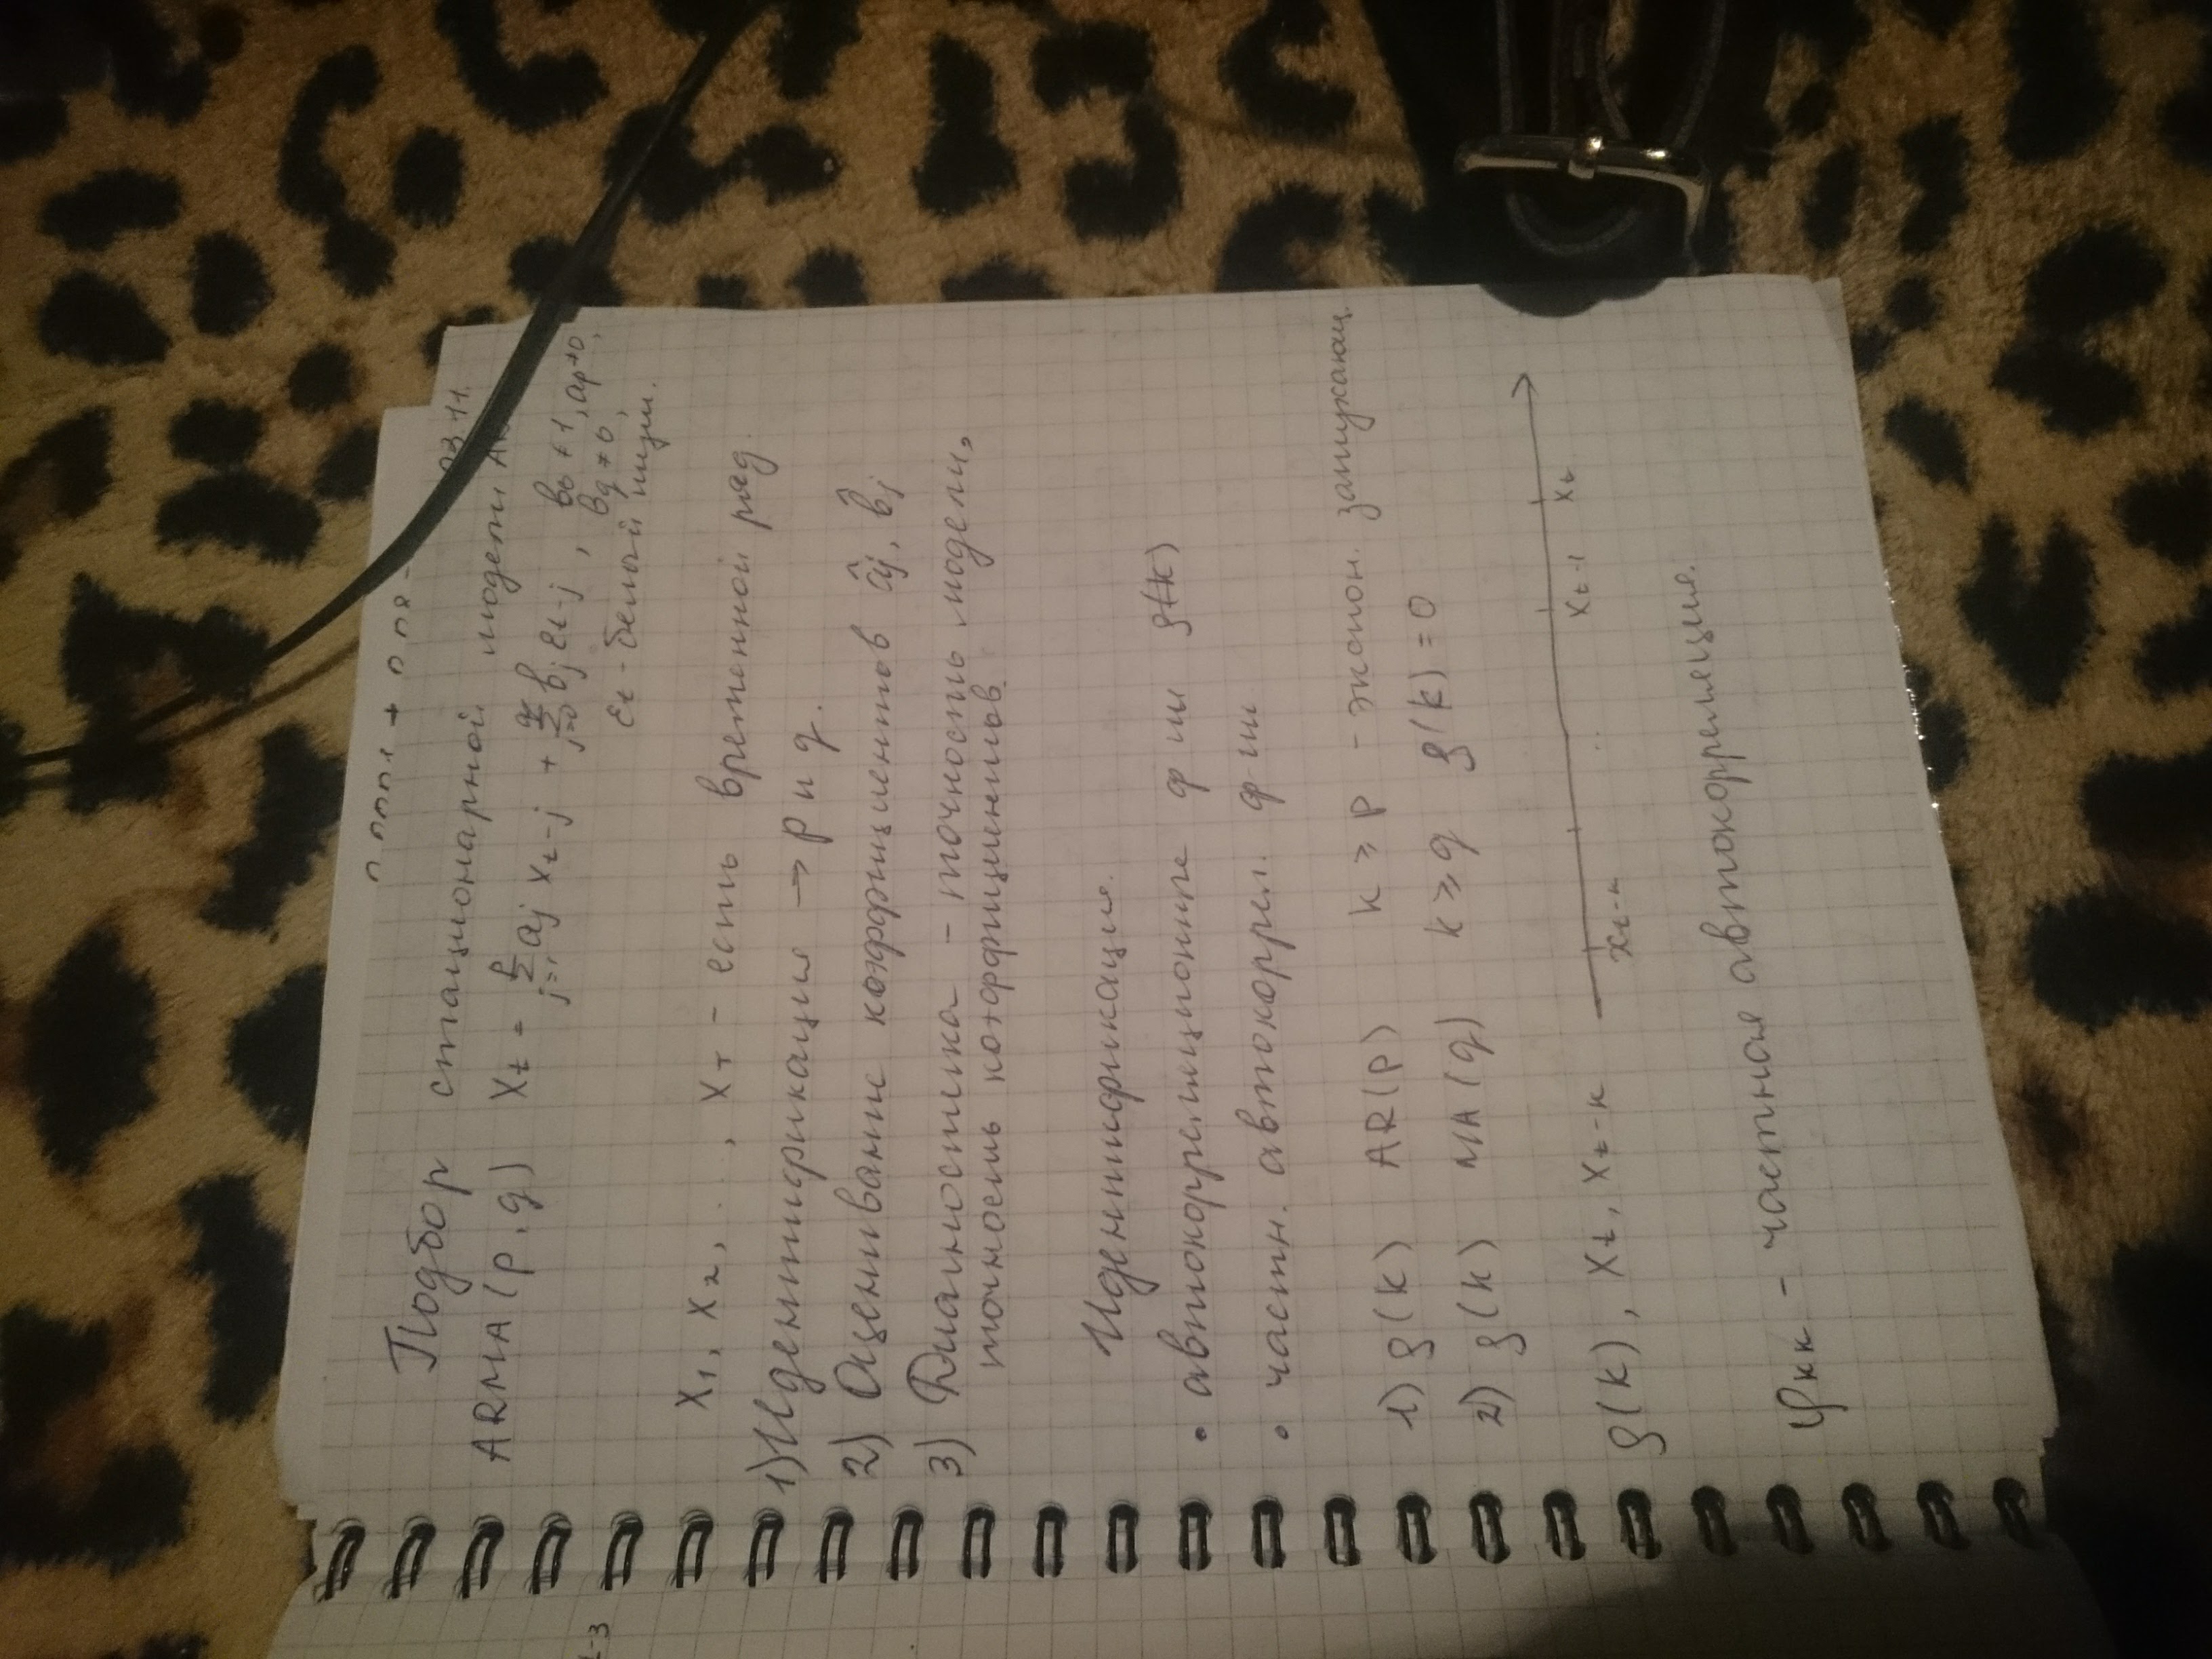 03.11.
Подбор стационарной модели
ARMA(p,q) Xt = Σ aj Xt-j + Σ bj εt-j , b0 ≠ 1, ap ≠ 0,
j=1 p j=0 q bq ≠ 0,
εt - белый шум.
X1, X2, ..., XT - есть временной ряд.
1) Идентификация → p и q.
2) Оценивание коэффициентов âj, b̂j
3) Диагностика - точность модели,
точность коэффициентов.
Идентификация.
• автокорреляционные ф-ии ρ(k)
• частн. автокоррел. ф-ии.
1) ρ(k) AR(p) k ≥ p - экспон. затухающ.
2) ρ(k) MA(q) k ≥ q ρ(k) = 0
ρ(k), Xt, Xt-k
Xt-k .. Xt-1 Xt
φkk - частная автокорреляция.
-3